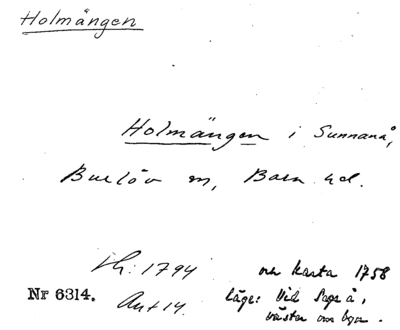 Holmängen
Holmängen i Sunnanå,
Burlöv sn, Bara hd.
Lh: 1794
Nr 6314.
Ant 14.
och karta 1758
läge: Vid Sege å,
väster om byn.